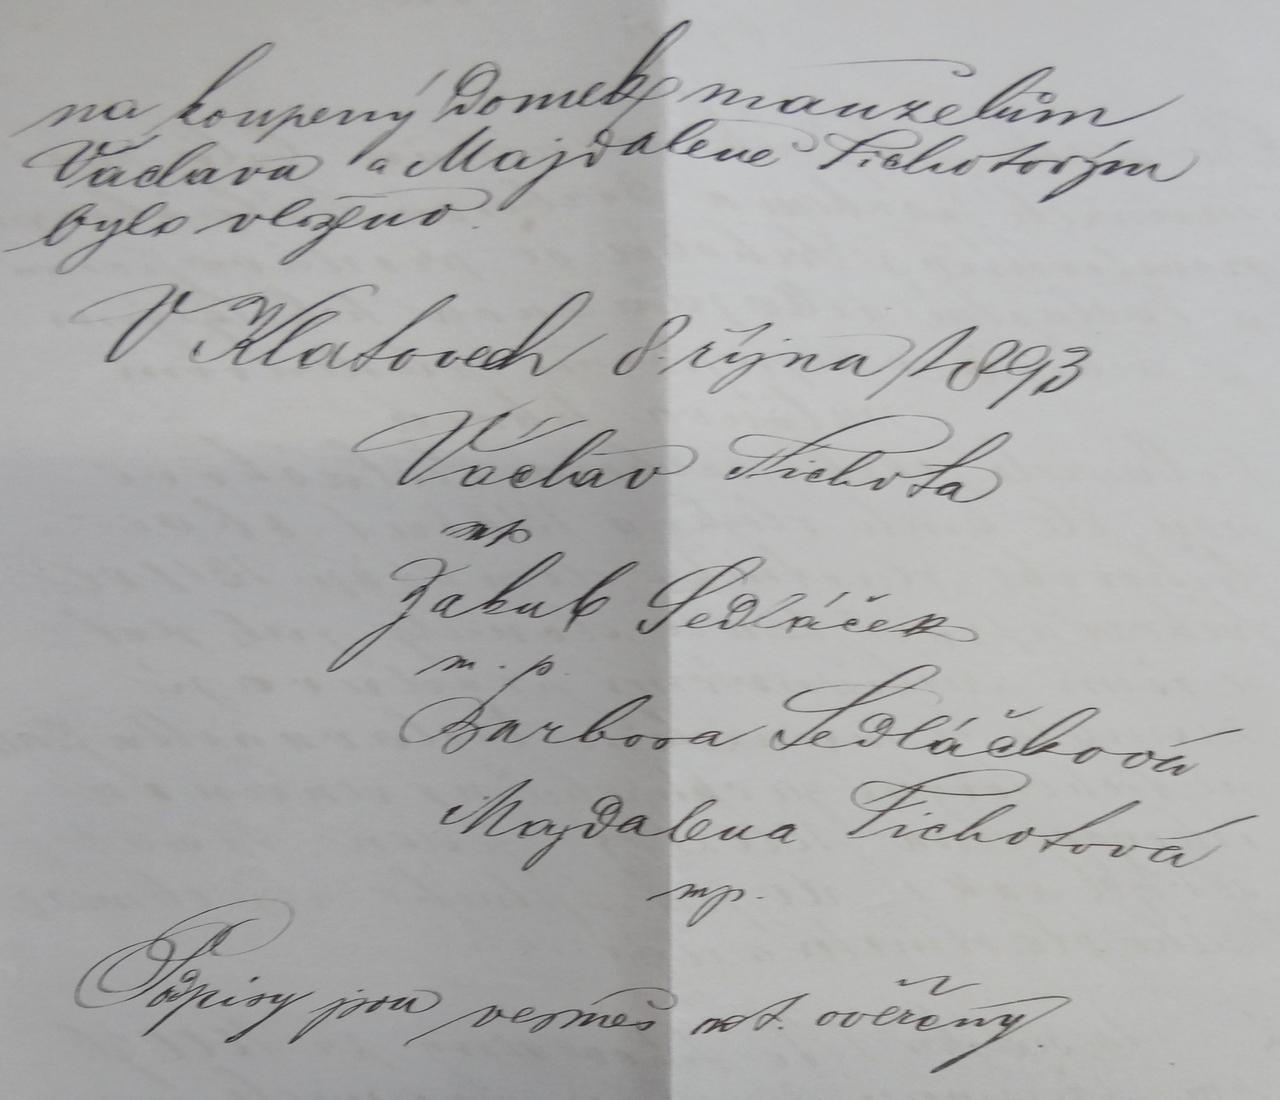 na koupený domek manželům
Václava a Majdaleně Tichotovým
bylo vloženo.
V Klatovech 8. října 1893
Václav Tichota
mp
Jakub Sedláček
m. p.
Barbora Sedláčková
Majdalena Tichotová
mp.
Podpisy jsou vesměs not. ověřeny.